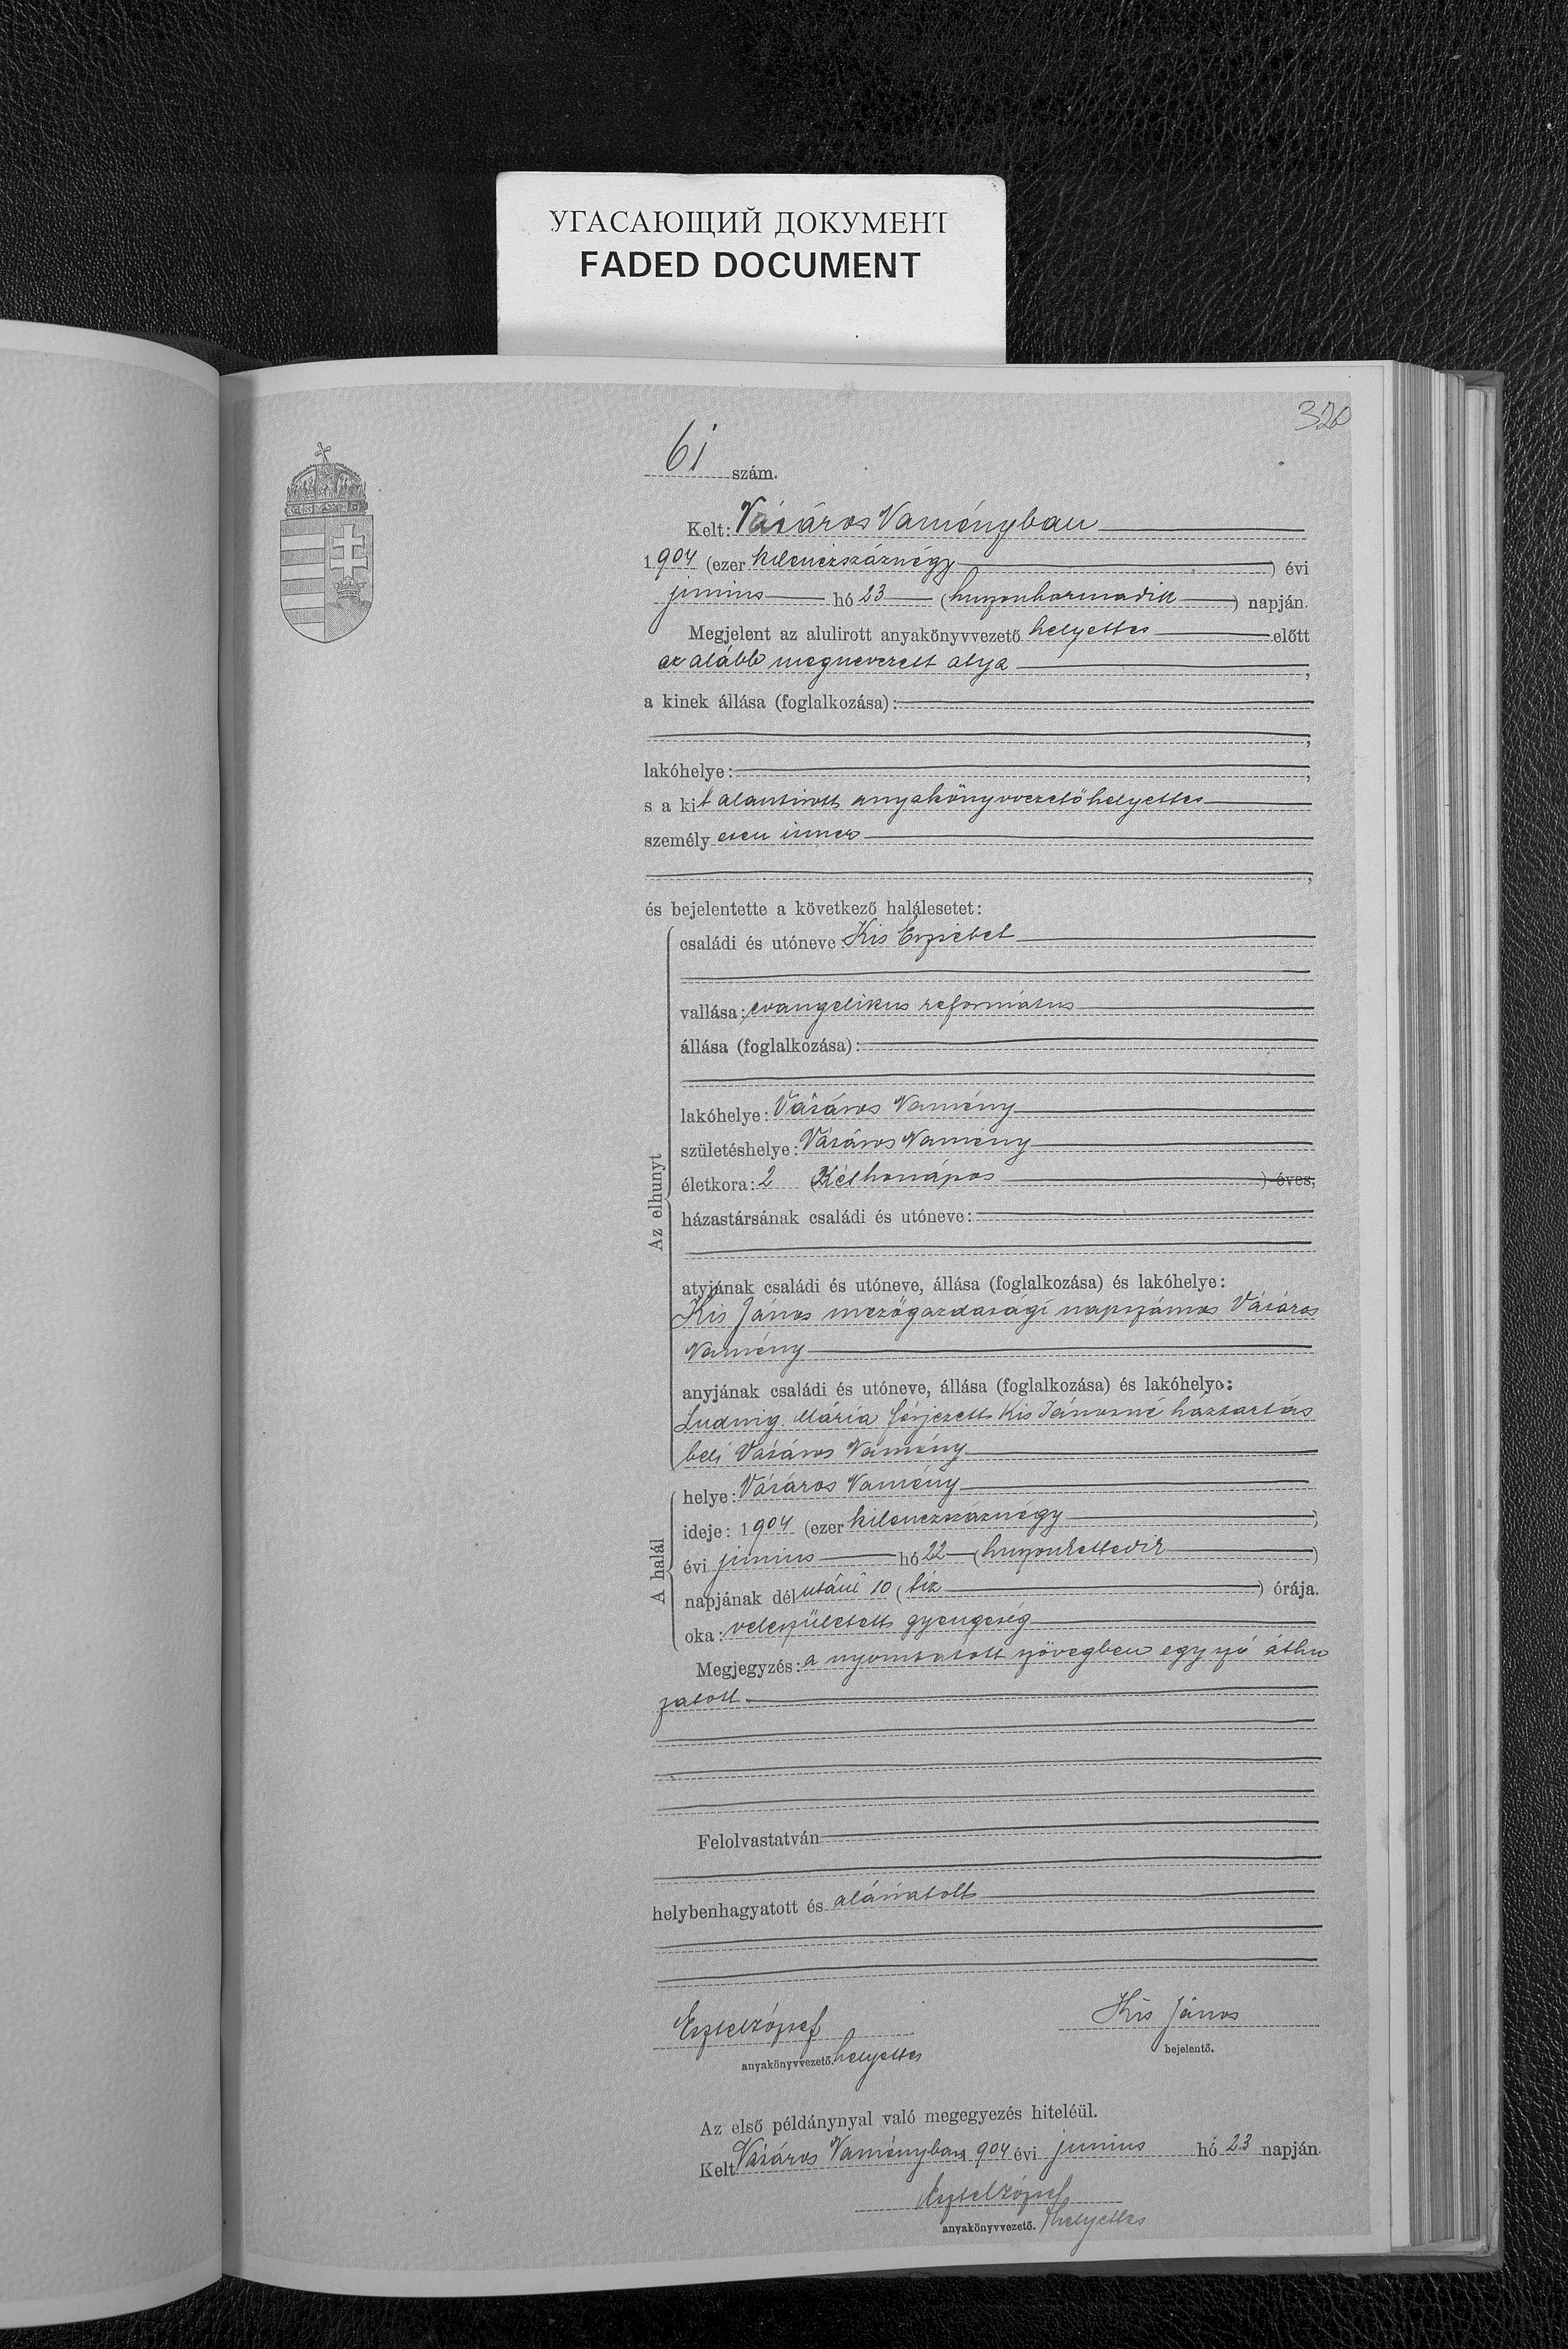 УГАСАЮЩИЙ ДОКУМЕНТ
FADED DOCUMENT
320
61 szám.
Kelt: Vásáros Naményban
1904 (ezer kilenczszáznégy) évi
junius hó 23 (huszonharmadik) napján.
Megjelent az alulirott anyakönyvvezető helyettes előtt
az alább megnevezett atya,
a kinek állása (foglalkozása):
lakóhelye:
s a kit alantirott anyakönyvvezető helyettes
személyesen ismer
és bejelentette a következő halálesetet:
Az elhunyt
családi és utóneve: Kis Erzsébet
vallása: evangelikus református
állása (foglalkozása):
lakóhelye: Vásáros Namény
születéshelye: Vásáros Namény
életkora: 2 (Két hónapos) éves,
házastársának családi és utóneve:
atyjának családi és utóneve, állása (foglalkozása) és lakóhelye:
Kis János mezőgazdasági napszámos Vásáros
Namény
anyjának családi és utóneve, állása (foglalkozása) és lakóhelye:
Ludwig Mária férjezett Kis Jánosné háztartás
beli Vásáros Namény
A halál
helye: Vásáros Namény
ideje: 1904 (ezer kilenczszáznégy)
évi junius hó 22 (huszonkettedik)
napjának délutáni 10 (tíz) órája.
oka: veleszületett gyengeség
Megjegyzés: a nyomtatott szövegben egy szó áthu
zatott.
Felolvastatván
helybenhagyatott és aláiratott
Kis János
anyakönyvvezető. helyettes
bejelentő.
Az első példánynyal való megegyezés hiteléül.
Kelt Vásáros Naményban 1904 évi junius hó 23 napján.
anyakönyvvezető. helyettes